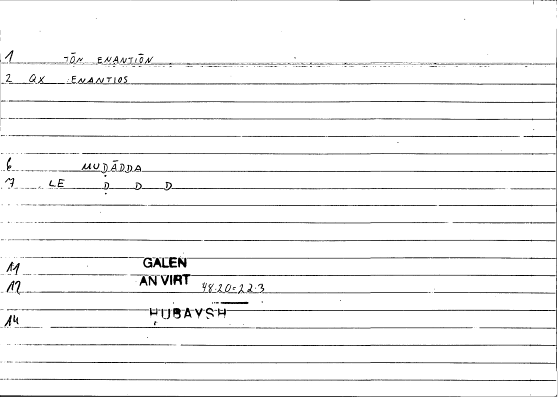 1 TŌN ENANTIŌN
2 QX ENANTIOS
6 MUḌĀDDA
7 LE Ḍ D D
11 GALEN
12 AN VIRT 48.20=22.3
14 ḤUBAYSH